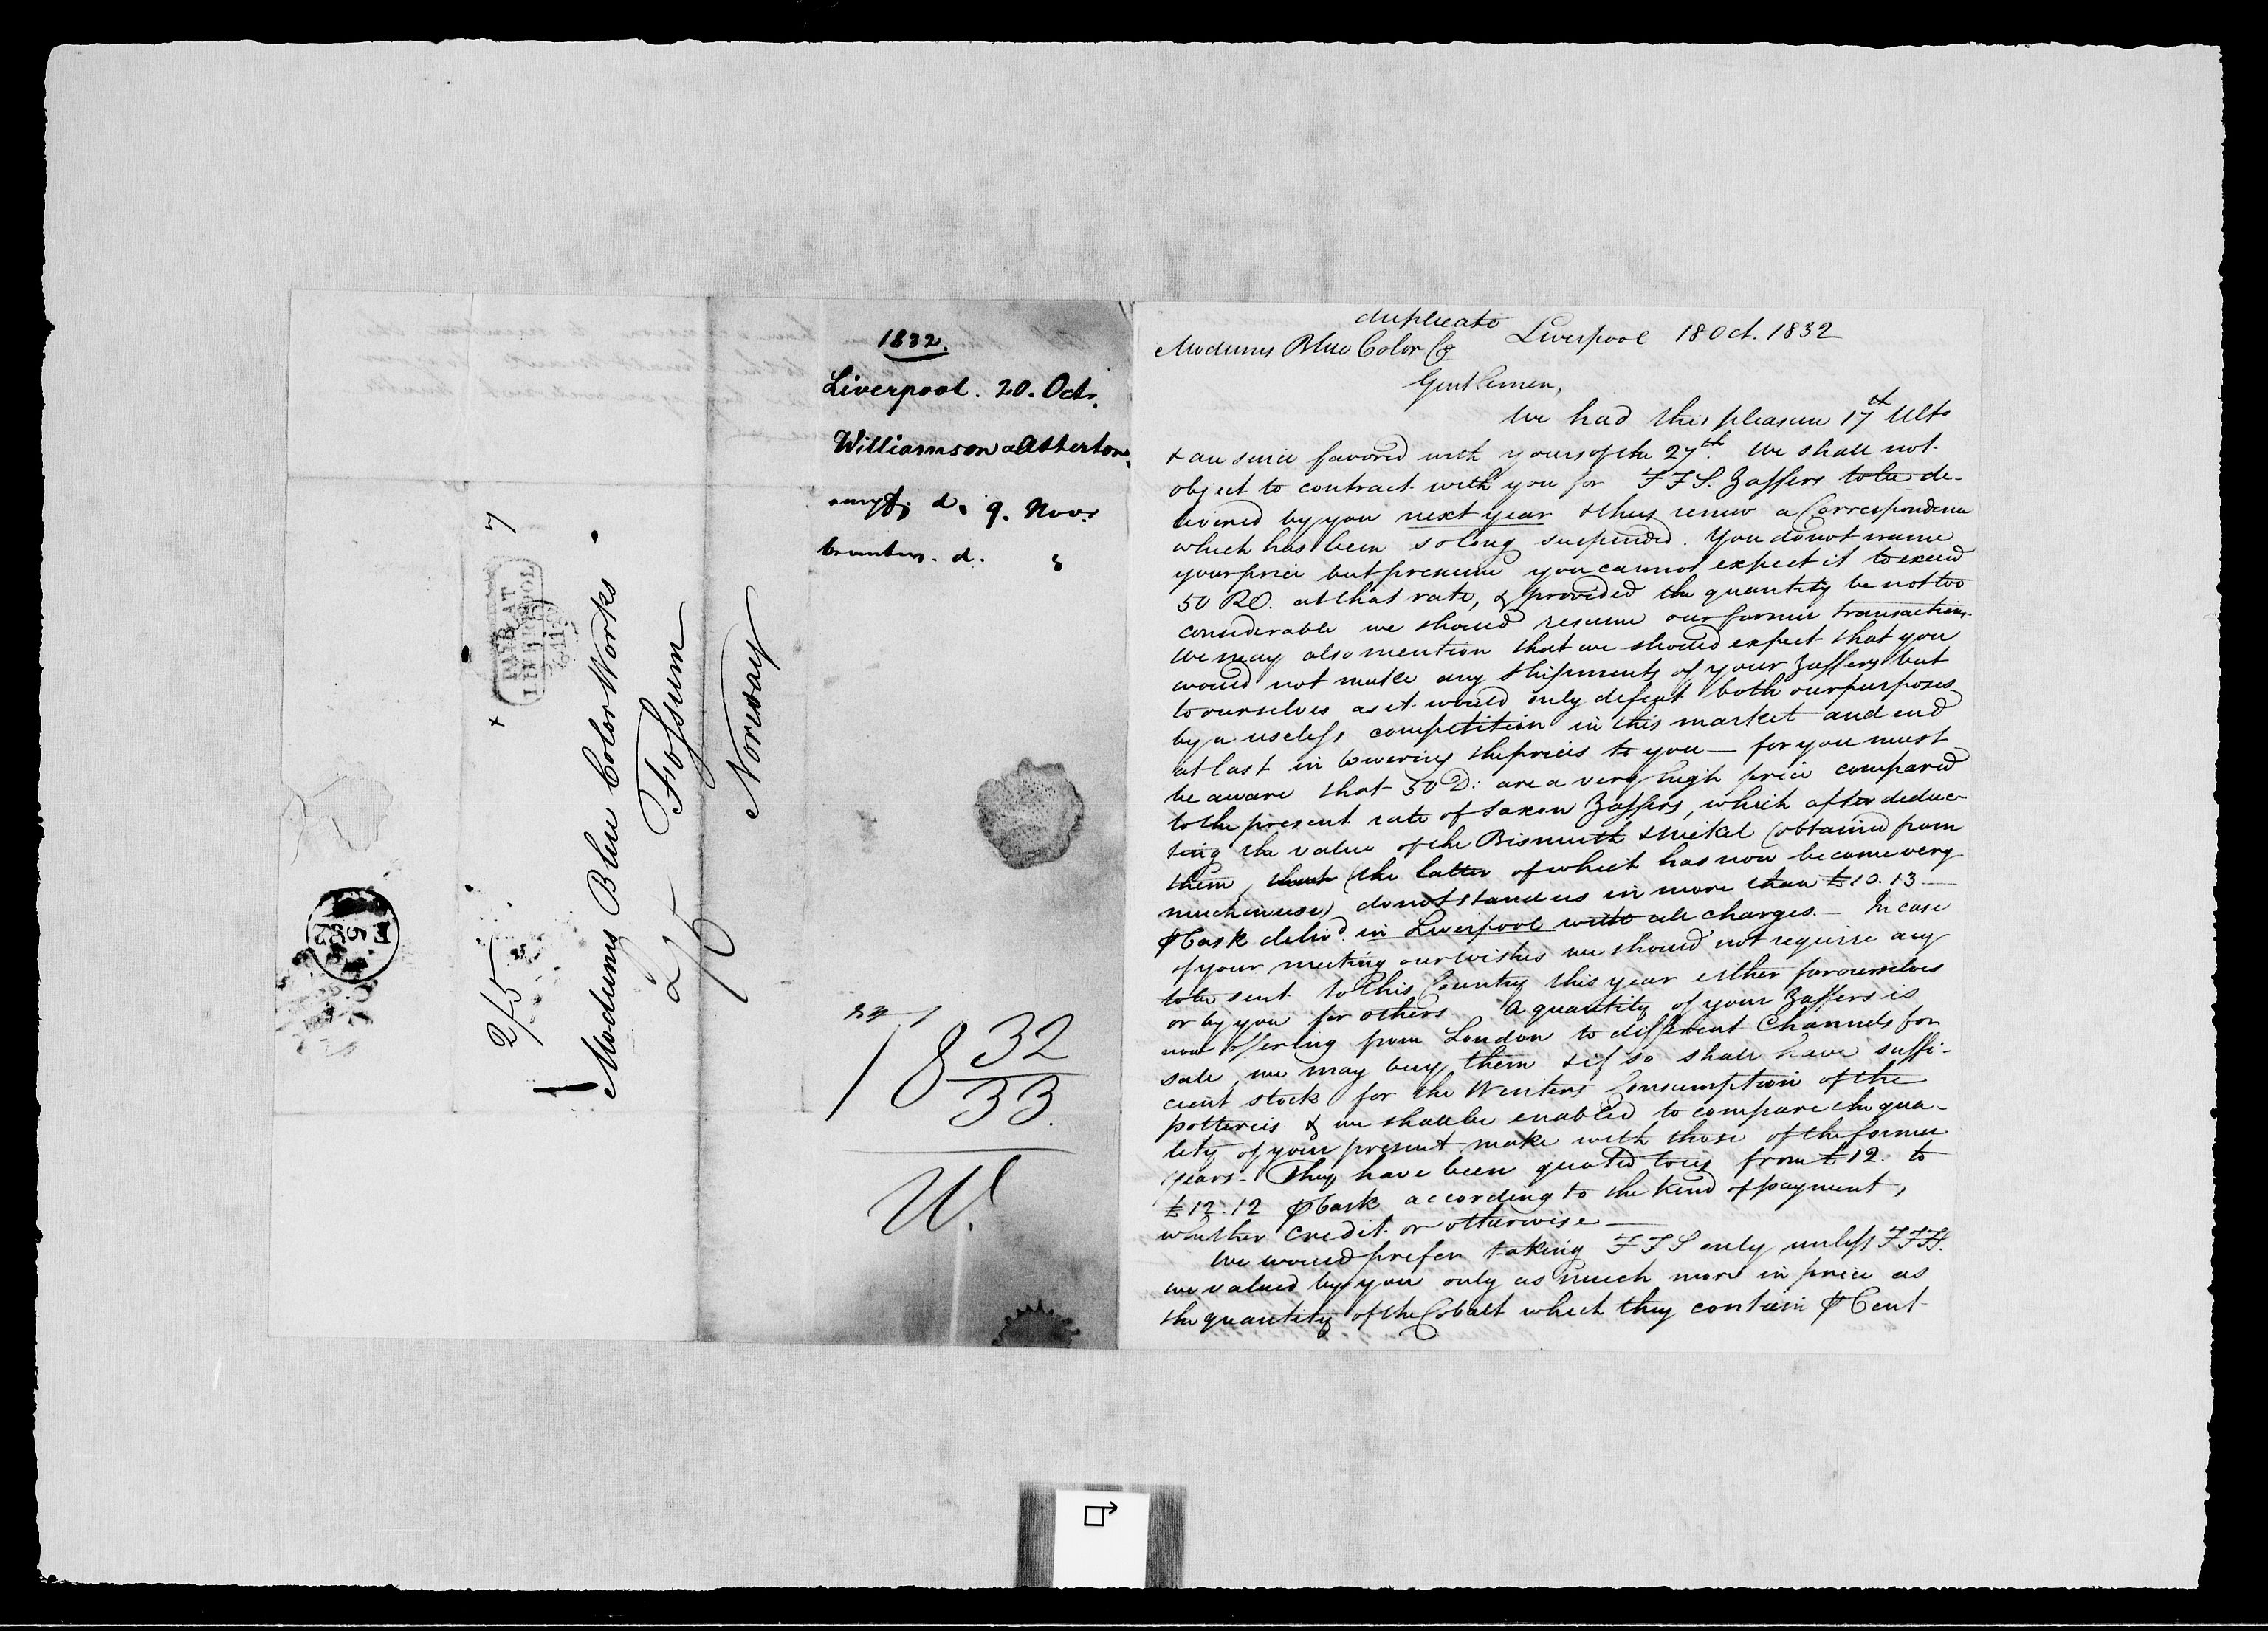 1832.
Liverpool. 20. Octr.
Williamson & Atherton.
empf. d. 9. Novr.
beantw. d. "
18 32/33.
W.
2/5
PAID AT
LIVERPOOL
Modums Blue Color Works
Fossum
Norway
duplicate
Liverpool 18 Oct. 1832
Modums Blue Color Co
Gentlemen,
We had this pleasure 17th Ulto
& are since favored with yours of the 27th. We shall not
object to contract with you for FFS. Zaffers to be de-
livered by you next year & thus renew a Correspondence
which has been so long suspended. You do not name
your price but presume you cannot expect it to exceed
50 RD. at that rate, & provided the quantity be not too
considerable we should resume our former transactions.
We may also mention that we should expect that you
would not make any shipments of your Zaffers but
to ourselves as it would only defeat both our purposes
by a useless competition in this market and end
at last in lowering the prices to you — for you must
be aware that 50 D: are a very high price compared
to the present rate of Saxon Zaffers, which after deduc-
ting the value of the Bismuth & Nickel (obtained from
them, (the latter of which has now become very
much in use) do not stand us in more than £10.13 —
⅌ Cask delivd. in Liverpool with all charges. — In case
of your meeting our wishes we should not require any
to be sent to this Country this year either for ourselves
or by you for others. A quantity of your Zaffers is
now offering from London to different Channels for
sale, we may buy them & if so shall have suffi-
cient stock for the Winters Consumption of the
potteries & we shall be enabled to compare the qua-
lity of your present make with those of the former
years. They have been quoted to us from £12. to
£12.12 ⅌ Cask according to the kind of payment,
whether Credit or otherwise —
We would prefer taking FFS only, unless FFFS.
were valued by you only as much more in price as
the quantity of the Cobalt which they contain ⅌ Cent